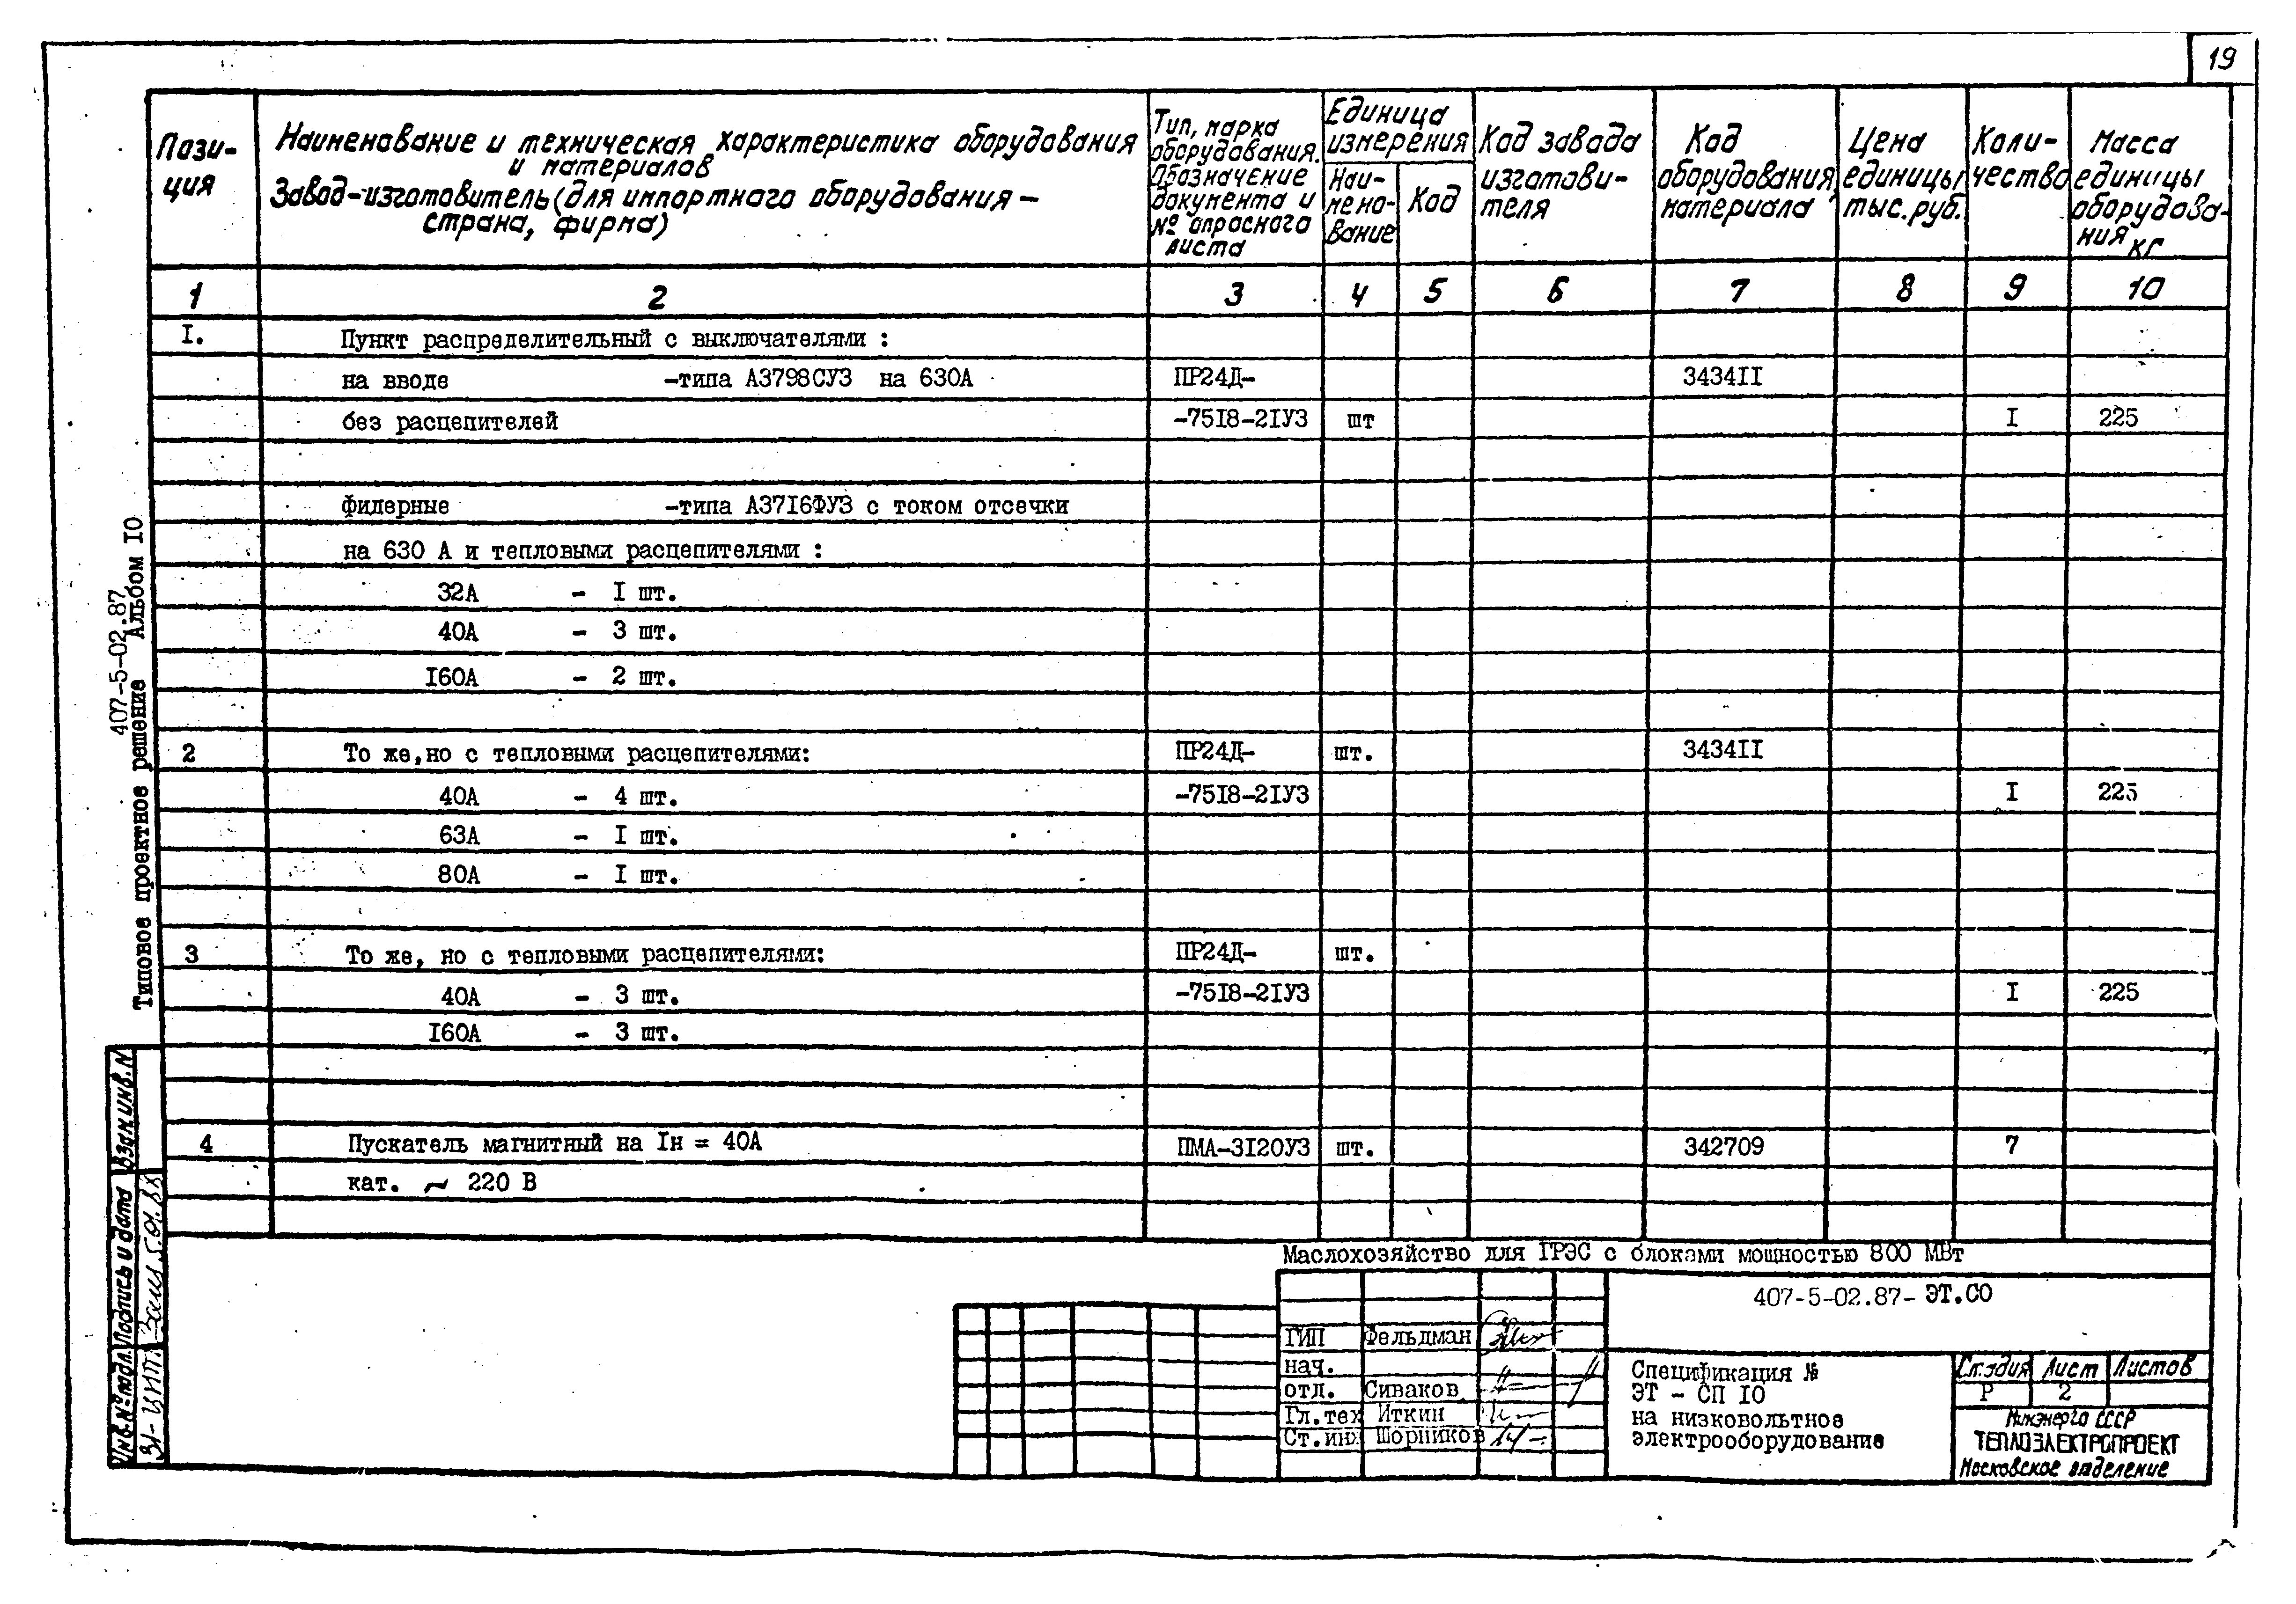 19
Пози-
ция
Наименование и техническая характеристика оборудования
и материалов
Завод-изготовитель (для импортного оборудования –
страна, фирма)
Тип, марка
оборудования.
Обозначение
документа и
№ опросного
листа
Единица
измерения
Наи-
мено-
вание
Код
Код завода
изготови-
теля
Код
оборудования,
материала
Цена
единицы
тыс. руб.
Коли-
чество
Масса
единицы
оборудова-
ния
кг
1 2 3 4 5 6 7 8 9 10
I. Пункт распределительный с выключателями :
на вводе -типа А3798СУ3 на 630А ПР24Д- 3434II
без расцепителей -75I8-2IУ3 шт I 225
Фидерные -типа А37I6ФУ3 с током отсечки
на 630 А и тепловыми расцепителями :
32А - I шт.
40А - 3 шт.
I60А - 2 шт.
2 То же,но с тепловыми расцепителями: ПР24Д- шт. 3434II
40А - 4 шт. -75I8-2IУ3 I 225
63А - I шт.
80А - I шт.
3 То же, но с тепловыми расцепителями: ПР24Д- шт.
40А - 3 шт. -75I8-2IУ3 I 225
I60А - 3 шт.
4 Пускатель магнитный на Iн = 40А ПМА-3I20У3 шт. 342709 7
кат. ~ 220 В
407-5-02.87
Типовое проектное решение Альбом IO
Взам инв. N
Подпись и дата
Инв. № подл.
Маслохозяйство для ГРЭС с блоками мощностью 800 МВт
407-5-02.87- ЭТ.СО
ГИП Фельдман
нач.
отд. Сиваков
Гл.тех Иткин
Ст.инж Шорников
Спецификация №
ЭТ - СП IO
на низковольтное
электрооборудование
Стадия Лист Листов
Р 2
Минэнерго СССР
ТЕПЛОЭЛЕКТРОПРОЕКТ
Московское отделение